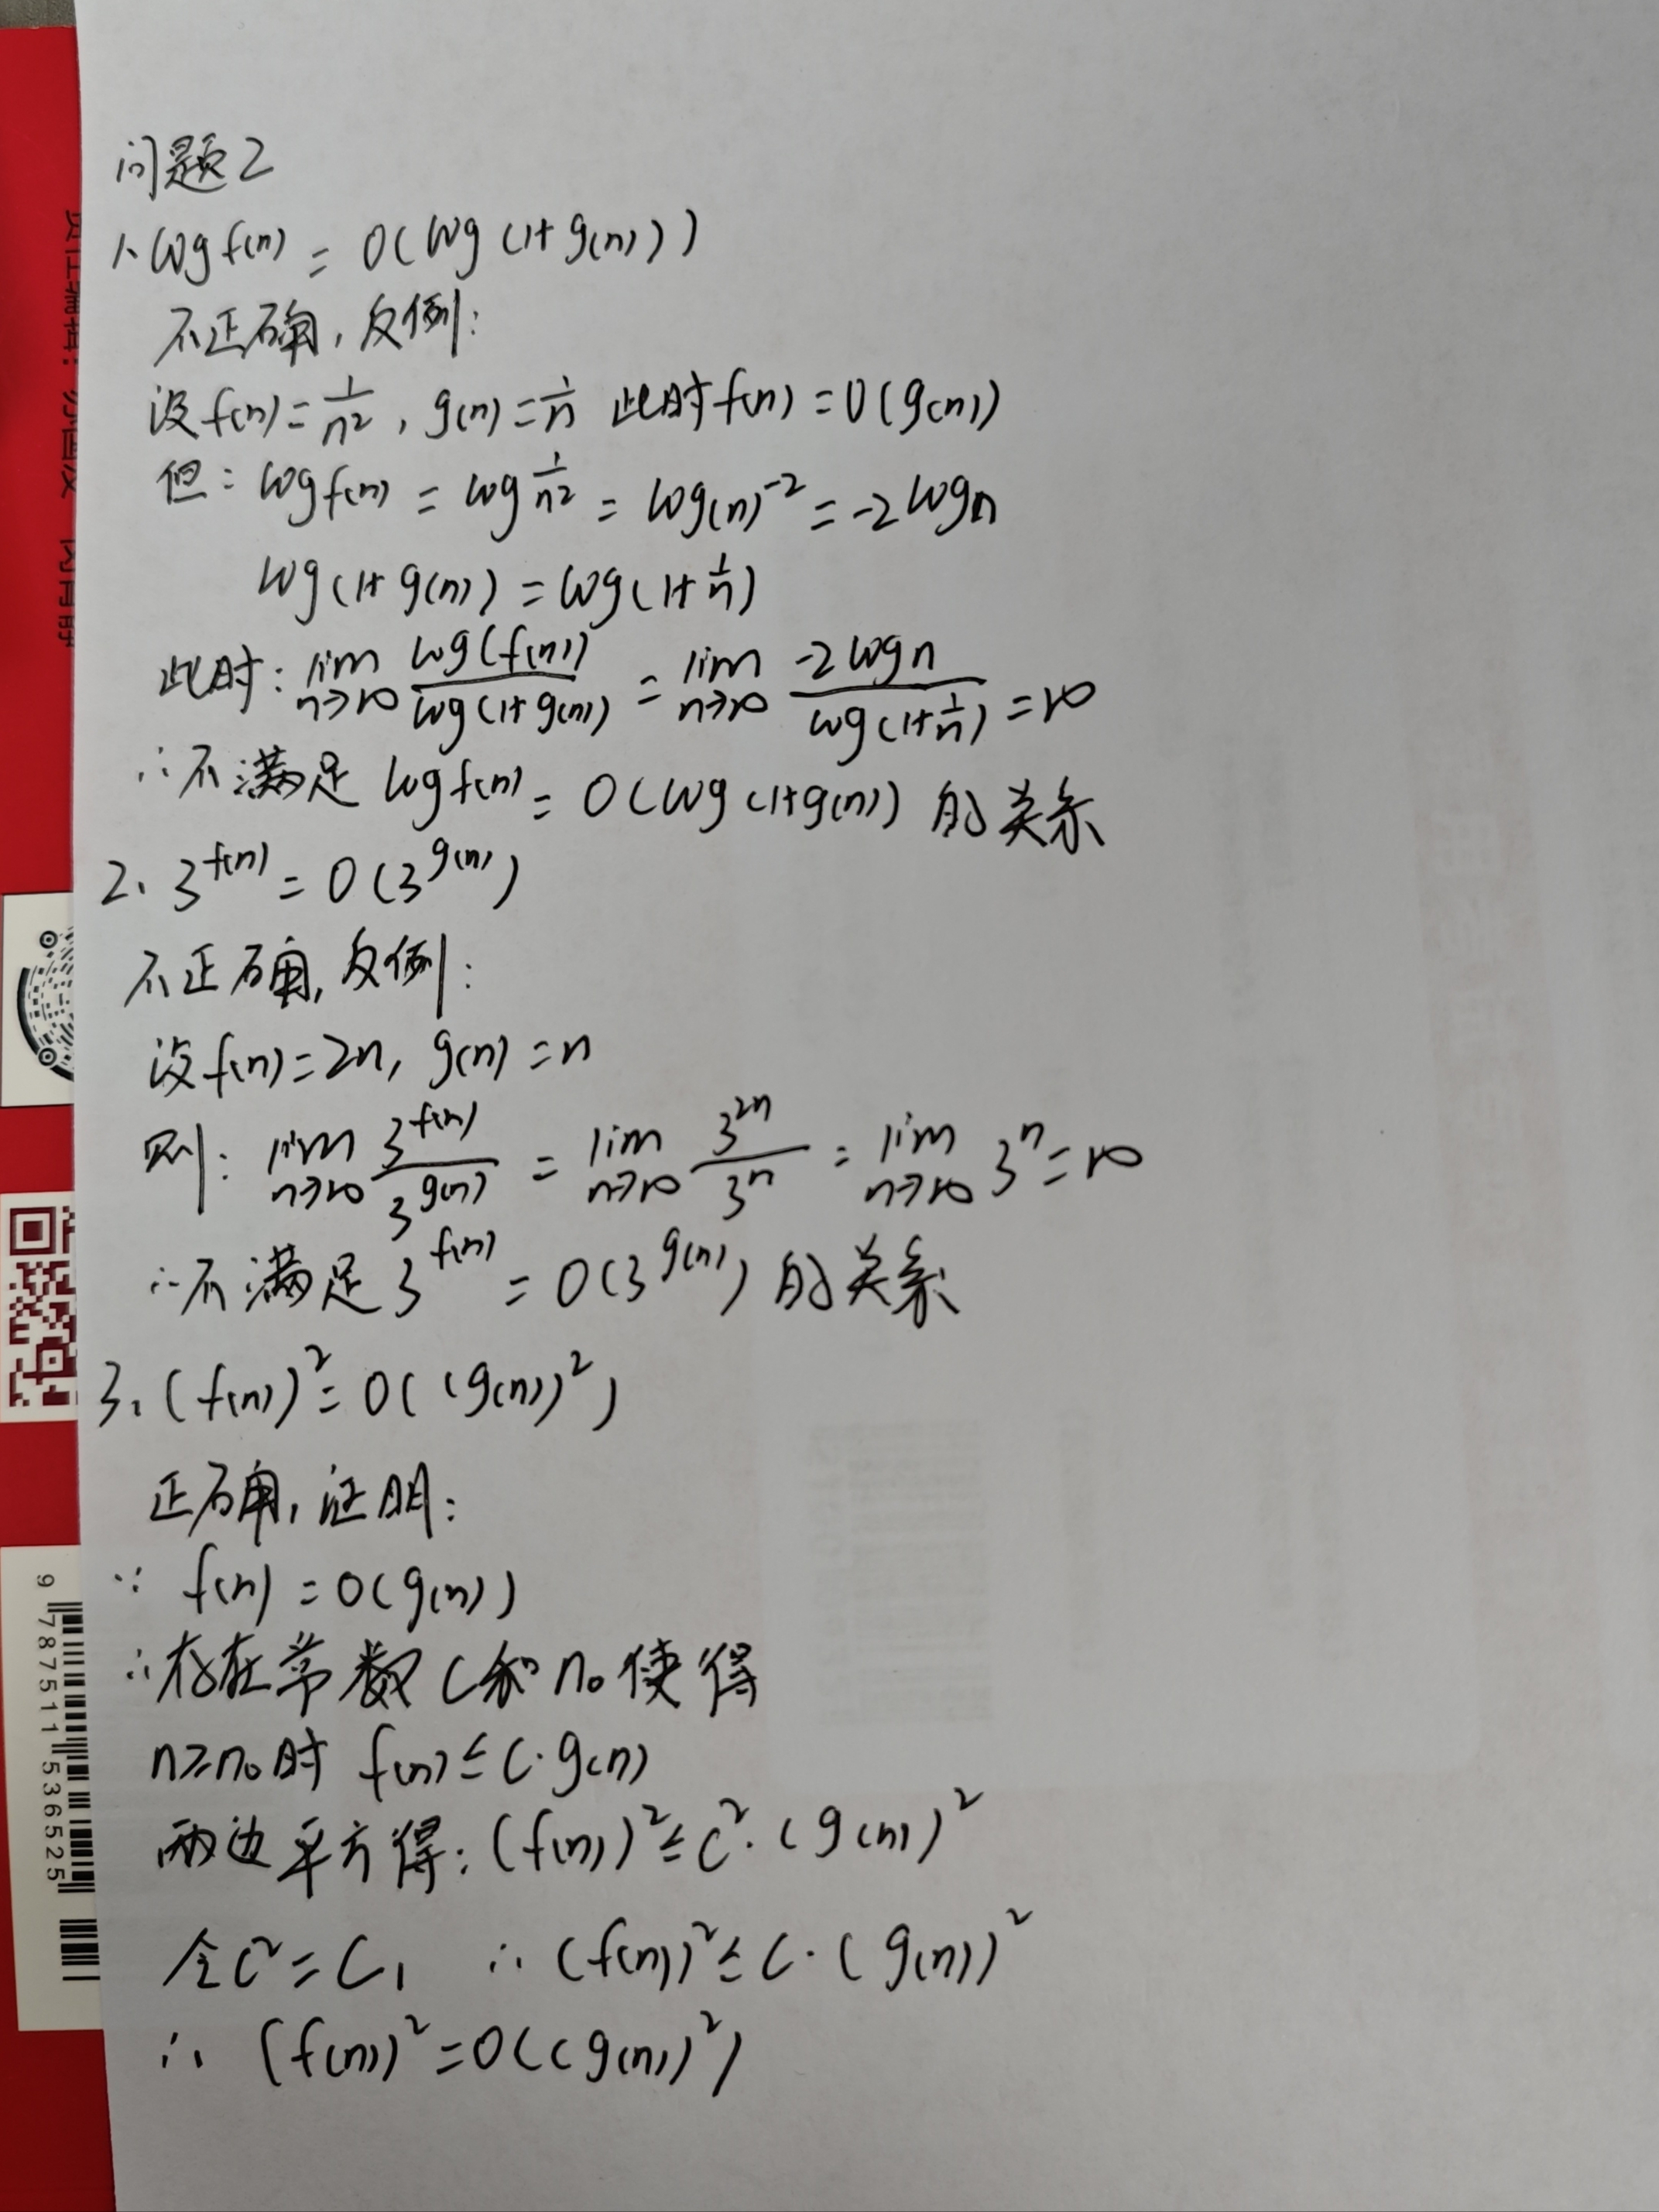 问题2
1、log f(n) = O(log(1+g(n)))
不正确,反例:
设f(n)=1/n², g(n)=1/n 此时f(n)=O(g(n))
但: log f(n) = log 1/n² = log(n)⁻² = -2logn
log(1+g(n)) = log(1+1/n)
此时: lim n→∞ log(f(n))/log(1+g(n)) = lim n→∞ -2logn/log(1+1/n) = ∞
∴不满足 log f(n) = O(log(1+g(n))) 的关系
2、3^f(n) = O(3^g(n))
不正确,反例:
设f(n)=2n, g(n)=n
则: lim n→∞ 3^f(n)/3^g(n) = lim n→∞ 3^2n/3^n = lim n→∞ 3^n = ∞
∴不满足 3^f(n) = O(3^g(n)) 的关系
3、(f(n))² = O((g(n))²)
正确,证明:
∵ f(n) = O(g(n))
∴存在常数C和n₀使得
n≥n₀时 f(n) ≤ C·g(n)
两边平方得: (f(n))² ≤ C²·(g(n))²
令C²=C₁ ∴ (f(n))² ≤ C·(g(n))²
∴ (f(n))² = O((g(n))²)
9 787511 536525